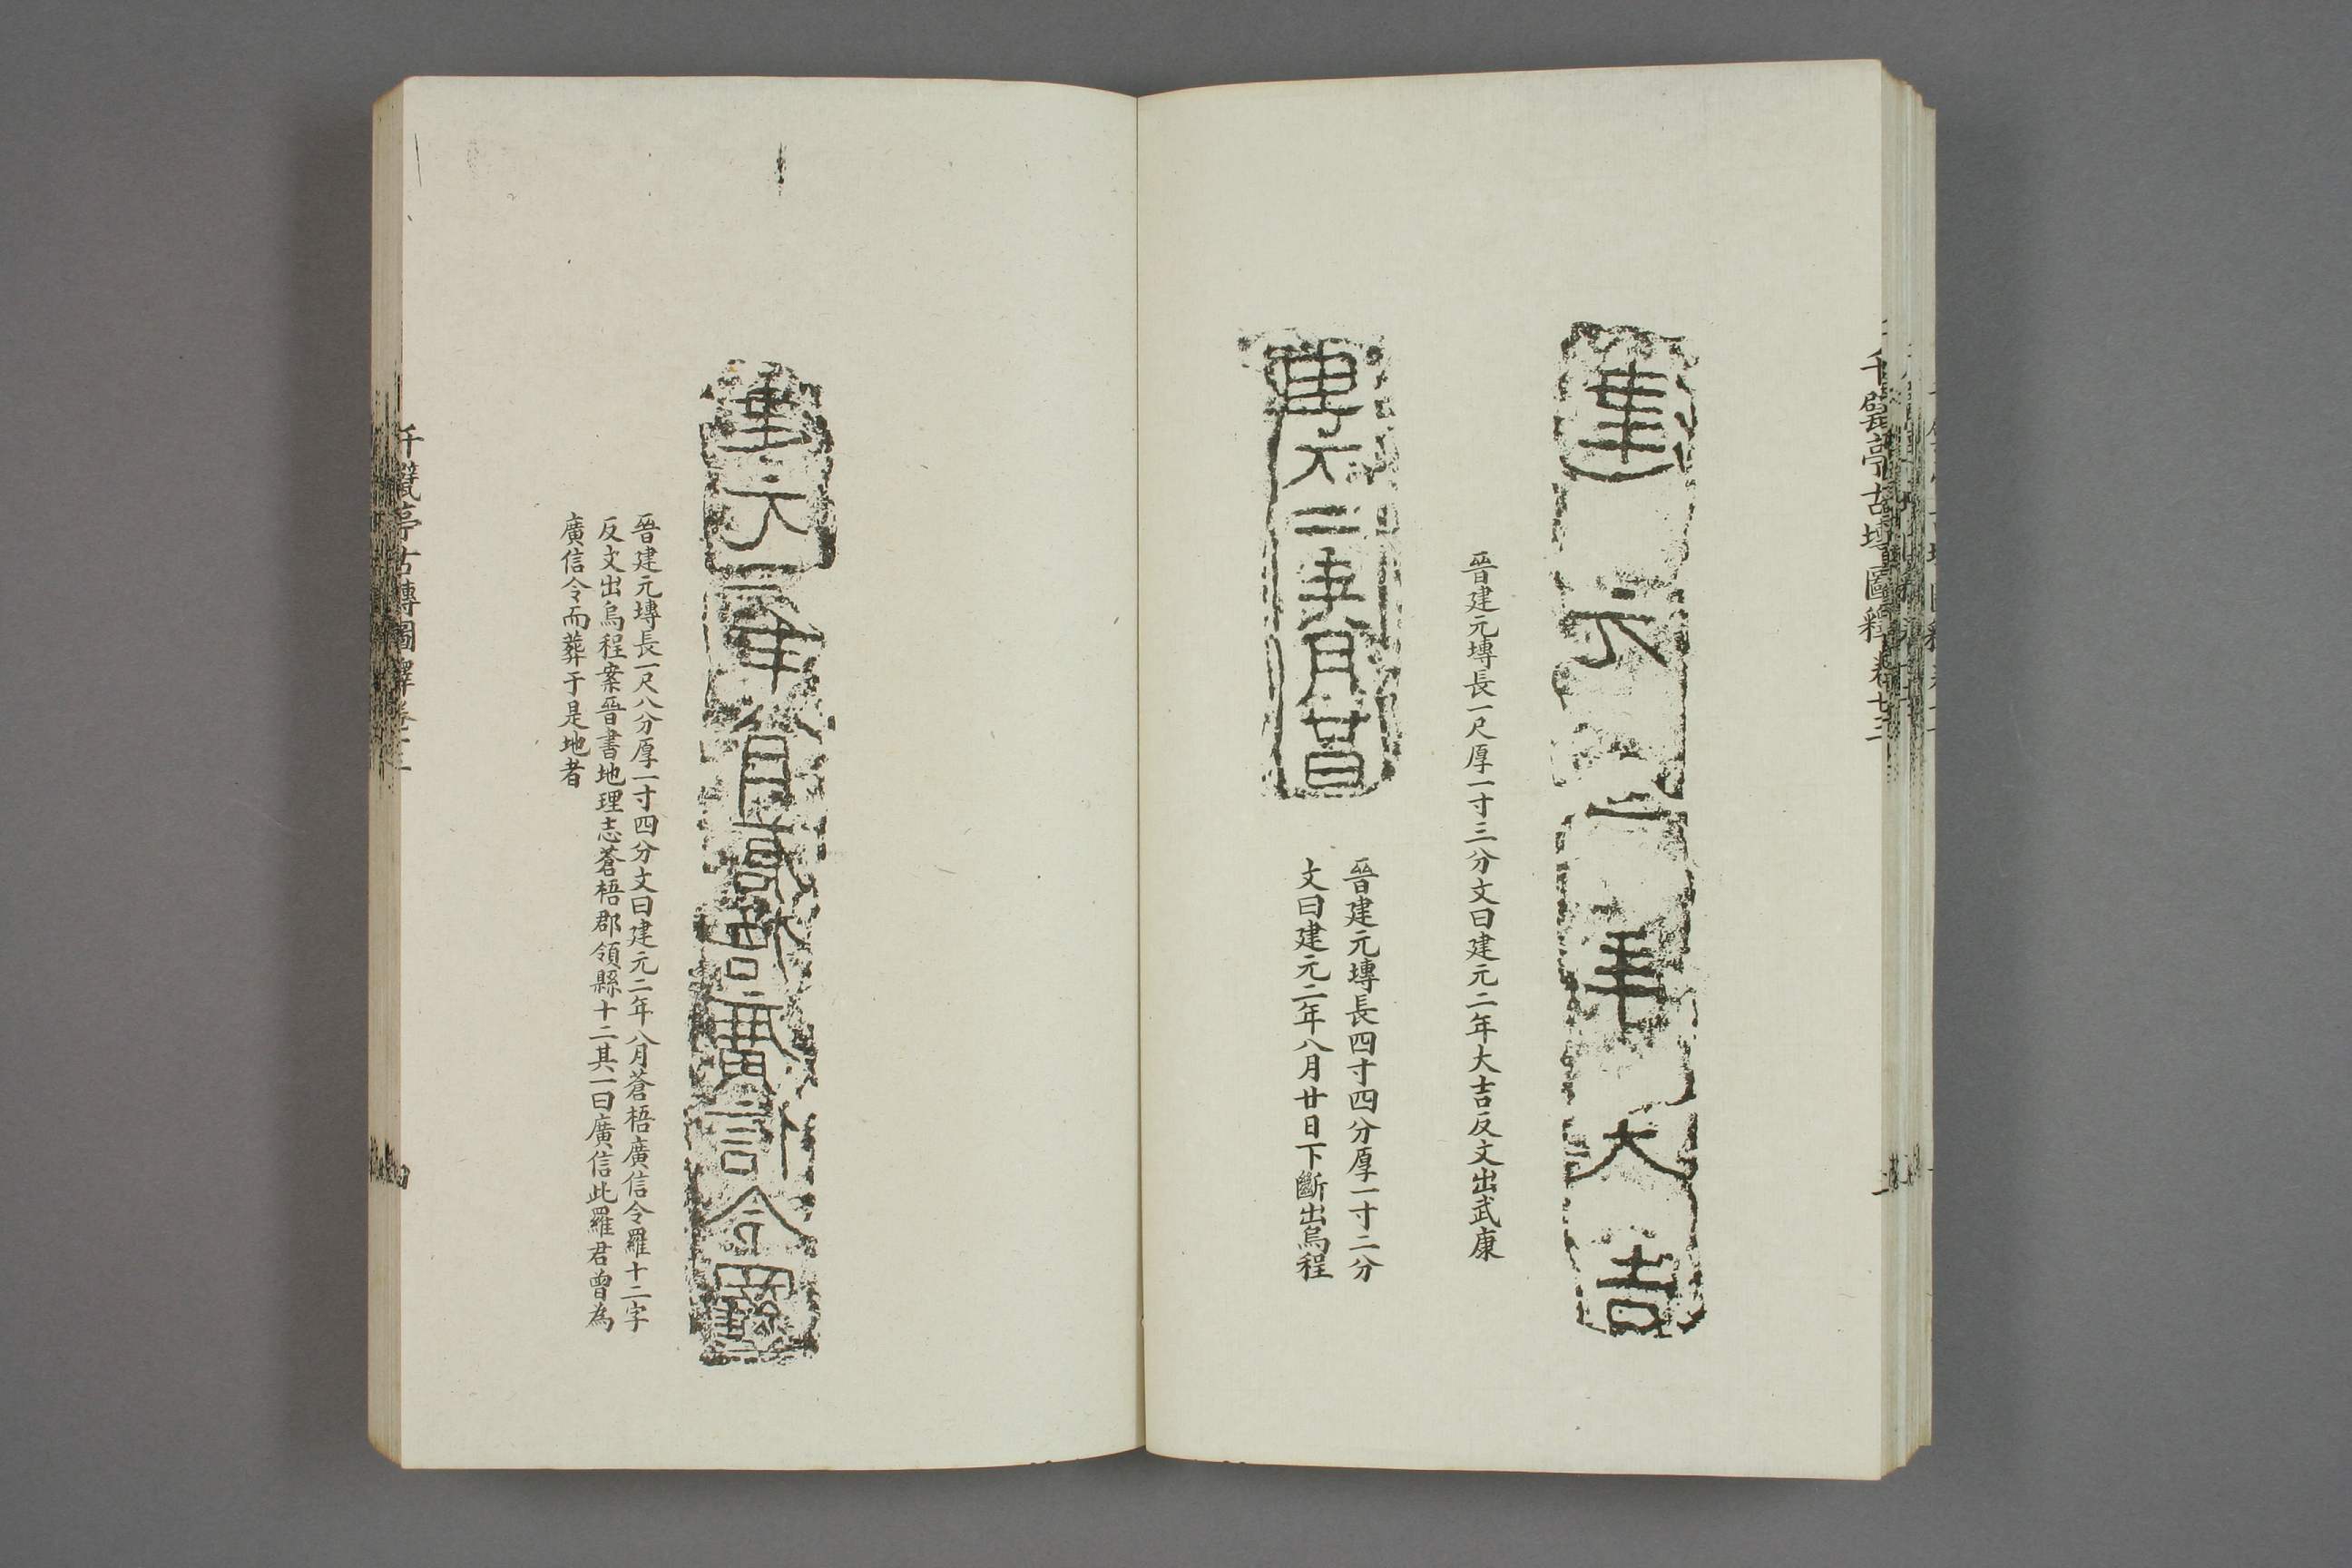 建元二年大吉
晉建元塼長一尺厚一寸三分文曰建元二年大吉反文出武康
建元二年八月廿日
晉建元塼長四寸四分厚一寸二分
文曰建元二年八月廿日下斷出烏程
建元二年八月蒼梧廣信令羅
晉建元塼長一尺八分厚一寸四分文曰建元二年八月蒼梧廣信令羅十二字
反文出烏程案晉書地理志蒼梧郡領縣十二其一曰廣信此羅君曾為
廣信令而葬于是地者
千甓亭古塼圖釋卷十三